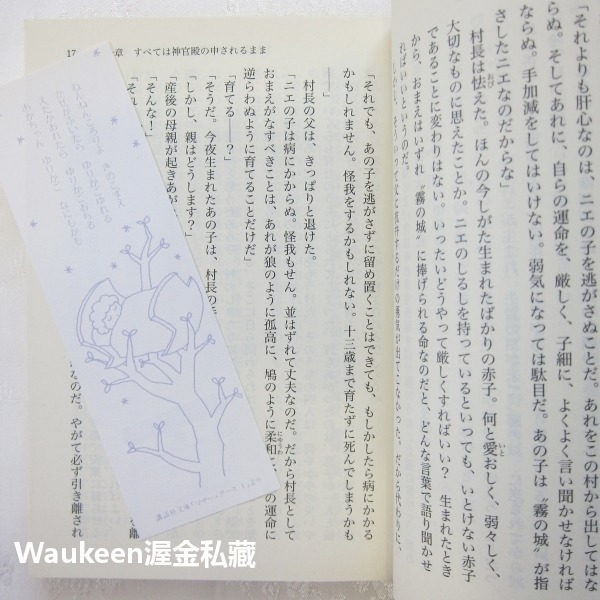 「それよりも肝心なのは、ニエの子を逃がさぬことだ。あれをこの村から出してはな
らぬ。そしてあれに、自らの運命を、厳しく、子細に、よくよく言い聞かせなければ
ならぬ。手加減をしてはいけない。弱気になっては駄目だ。あの子は〝霧の城〟が指
さしたニエなのだからな」
村長は怯えた。ほんの今しがた生まれたばかりの赤子。何と愛おしく、弱々しく、
大切なものに思えたことか。ニエのしるしを持っているといっても、いとけない赤子
であることに変わりはない。いったいどうやって厳しくすればいい？ 生まれたとき
から、おまえはいずれ〝霧の城〟に捧げられる命なのだと、どんな言葉で語り聞かせ
ればいいというのだ。
17
章 すべては神官殿の申されるまま
「それでも、あの子を逃がさずに留め置くことはできても、もしかしたら病にかかる
かもしれません。怪我をするかもしれない。十三歳まで育たずに死んでしまうかも
――」
村長の父は、きっぱりと退けた。
「ニエの子は病にかからぬ。怪我もせん。並はずれて丈夫なのだ。だから村長として
おまえがなすべきことは、あれが狼のように孤高に、鳩のように柔和に、
の運命に
逆らわぬように育てることだけだ」
「育てる――？」
「そうだ。今夜生まれたあの子は、村長の
「しかし、親はどうします？」
「産後の母親が起きあが
「そんな！」
「それ
のだ。やがて必ず引き離され
講談社文庫『マザー・グース
Waukeen渥金私藏